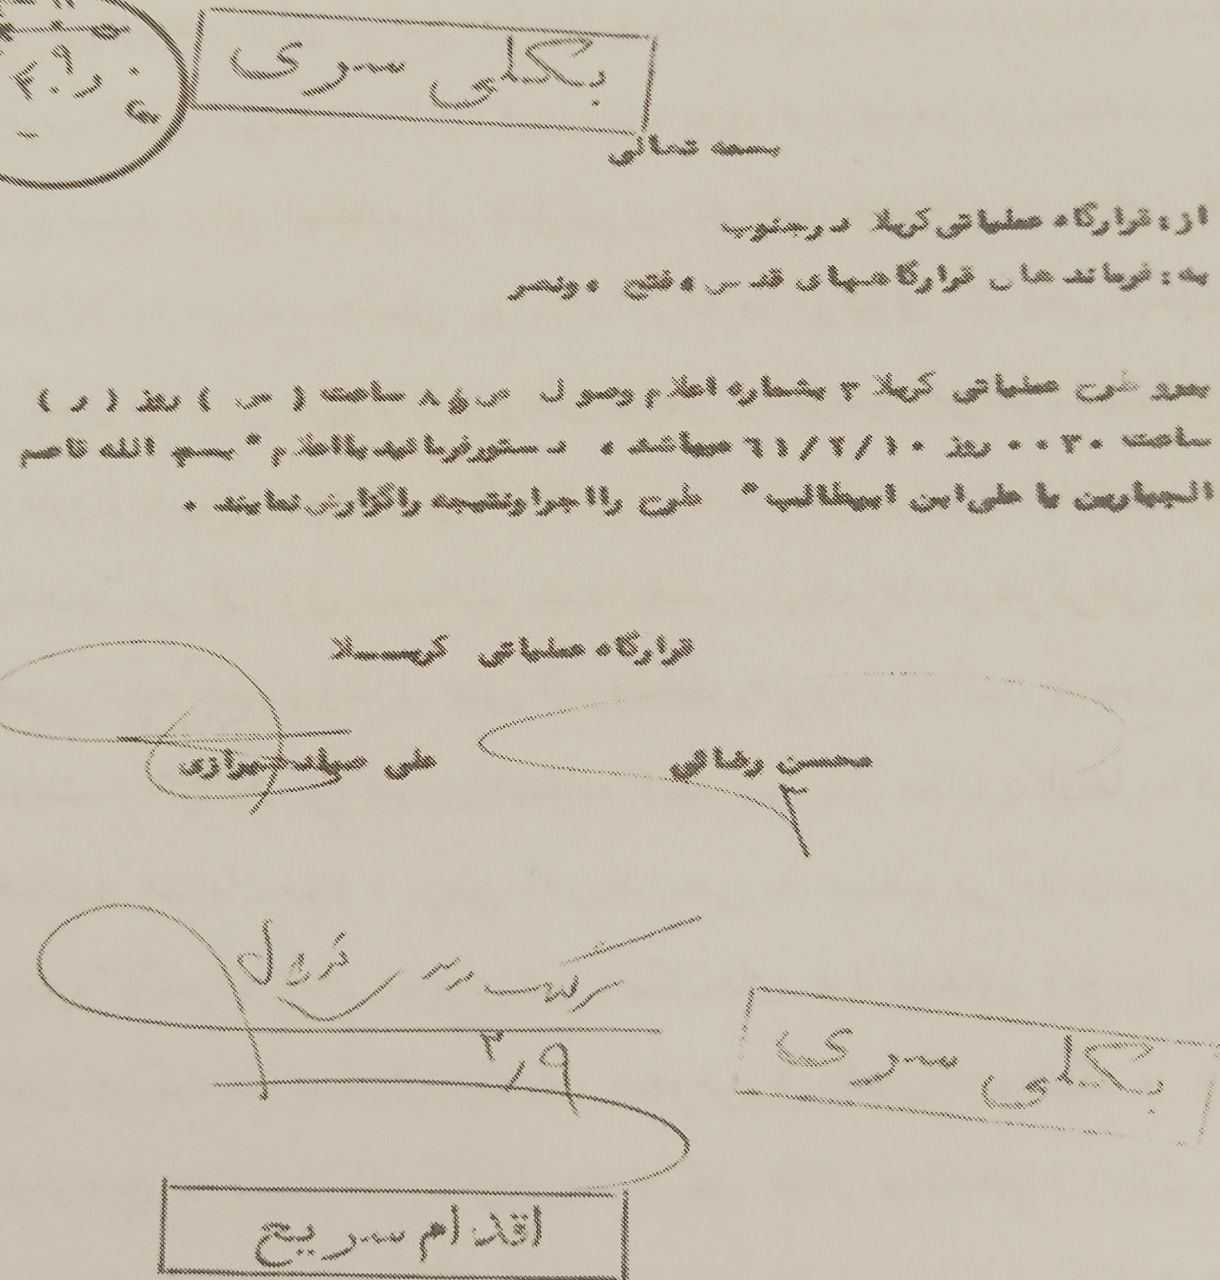 بکلی سری
بسمه تعالی
از : قرارگاه عملیاتی کربلا در جنوب
به : فرماندهان قرارگاههای قدس ، فتح ، ونصر
پیرو طرح عملیاتی کربلا ۳ بشماره اعلام وصول ساعت ( س ) روز ( ر )
ساعت ۰۰۳۰ روز ۶۱/۲/۱۰ میباشد ، دستور فرمائید با اعلام " بسم الله قاصم
الجبارین یا علی ابن ابیطالب " طرح را اجرا ونتیجه را گزارش نمایند .
قرارگاه عملیاتی کربلا
محسن رضائی
علی صیاد شیرازی
۲/۹
بکلی سری
اقدام سریع